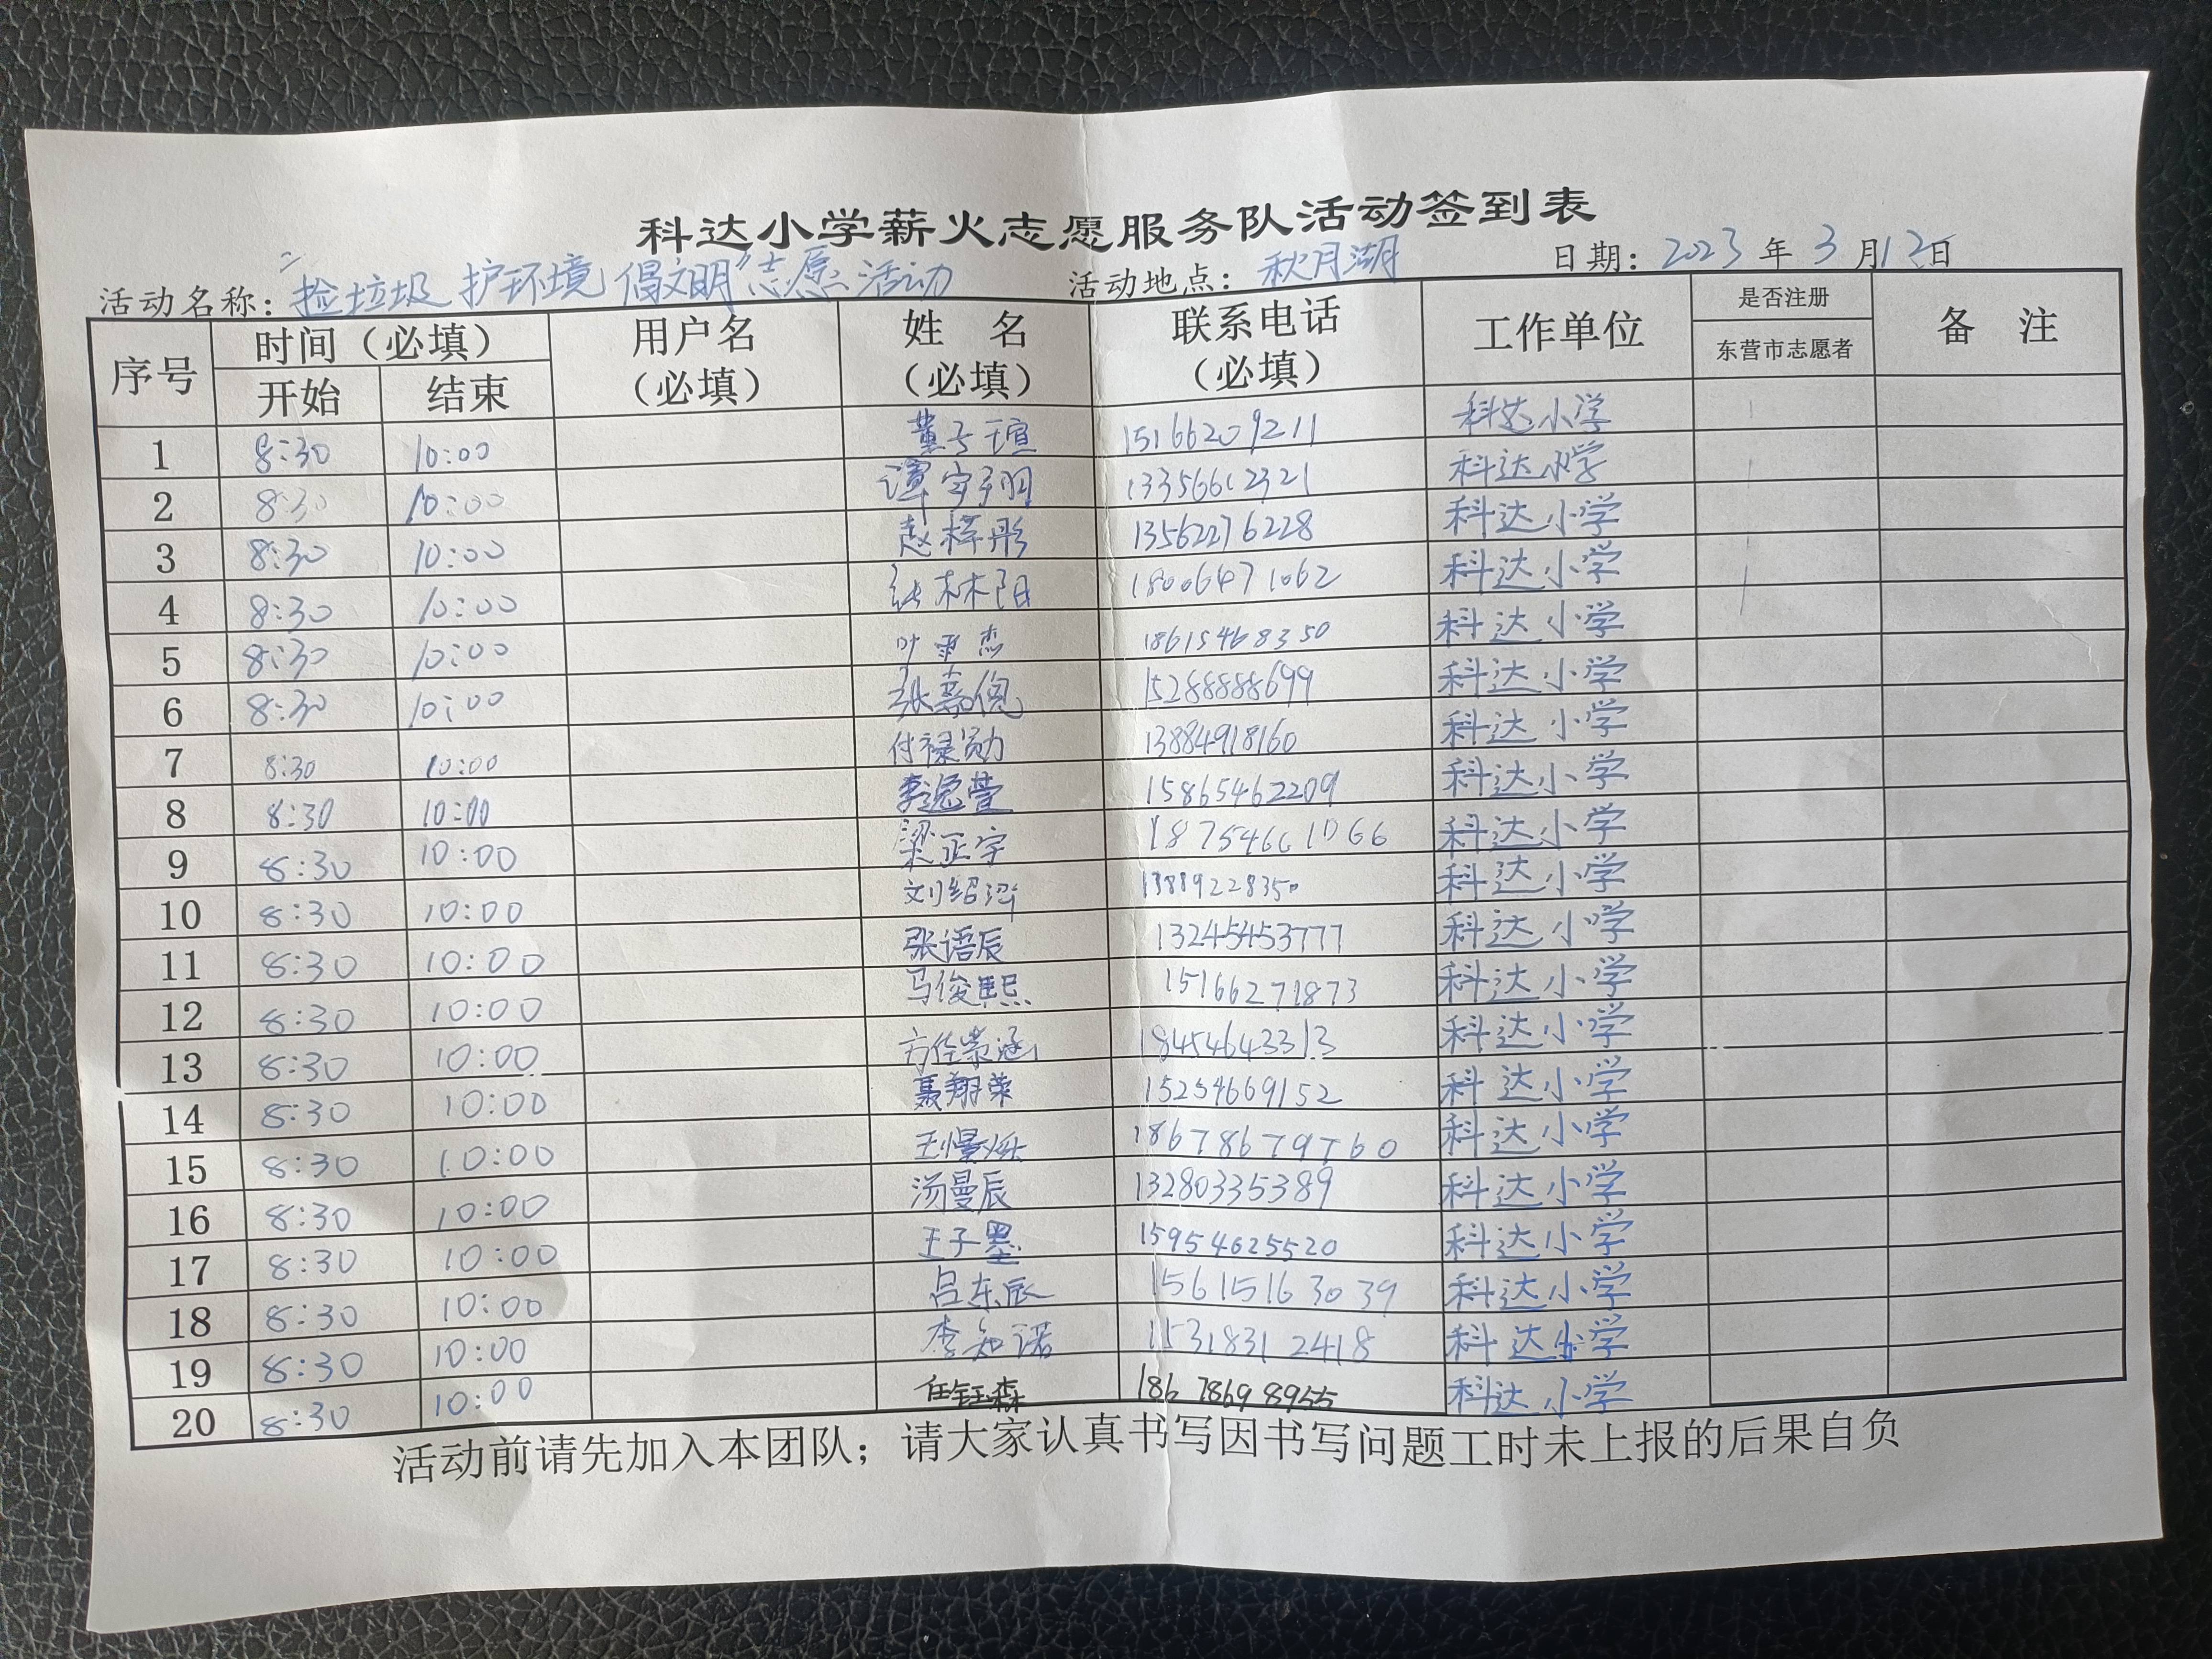 科达小学薪火志愿服务队活动签到表
活动名称："捡垃圾 护环境 倡文明"志愿活动 活动地点：秋月湖 日期：2023年3月12日
序号 时间（必填） 用户名（必填） 姓 名（必填） 联系电话（必填） 工作单位 是否注册 备 注
开始 结束 东营市志愿者
1 8:30 10:00 董子瑄 15166209211 科达小学
2 8:30 10:00 谭宇羽 科达小学
3 8:30 10:00 赵梓彤 13562276228 科达小学
4 8:30 10:00 张林阳 18006471062 科达小学
5 8:30 10:00 18615468350 科达小学
6 8:30 10:00 15288888699 科达小学
7 8:30 10:00 付禄勋 13884918160 科达小学
8 8:30 10:00 李逸萱 15865462209 科达小学
9 8:30 10:00 梁正宇 18754661066 科达小学
10 8:30 10:00 科达小学
11 8:30 10:00 张语辰 13245453777 科达小学
12 8:30 10:00 马俊熙 15166271873 科达小学
13 8:30 10:00 18454643313 科达小学
14 8:30 10:00 聂翔荣 15254669152 科达小学
15 8:30 10:00 18678679760 科达小学
16 8:30 10:00 汤曼辰 13280335389 科达小学
17 8:30 10:00 王子墨 15954625520 科达小学
18 8:30 10:00 吕东辰 15615163039 科达小学
19 8:30 10:00 李知诺 15318312418 科达小学
20 8:30 10:00 任钰森 18678698955 科达小学
活动前请先加入本团队；请大家认真书写因书写问题工时未上报的后果自负